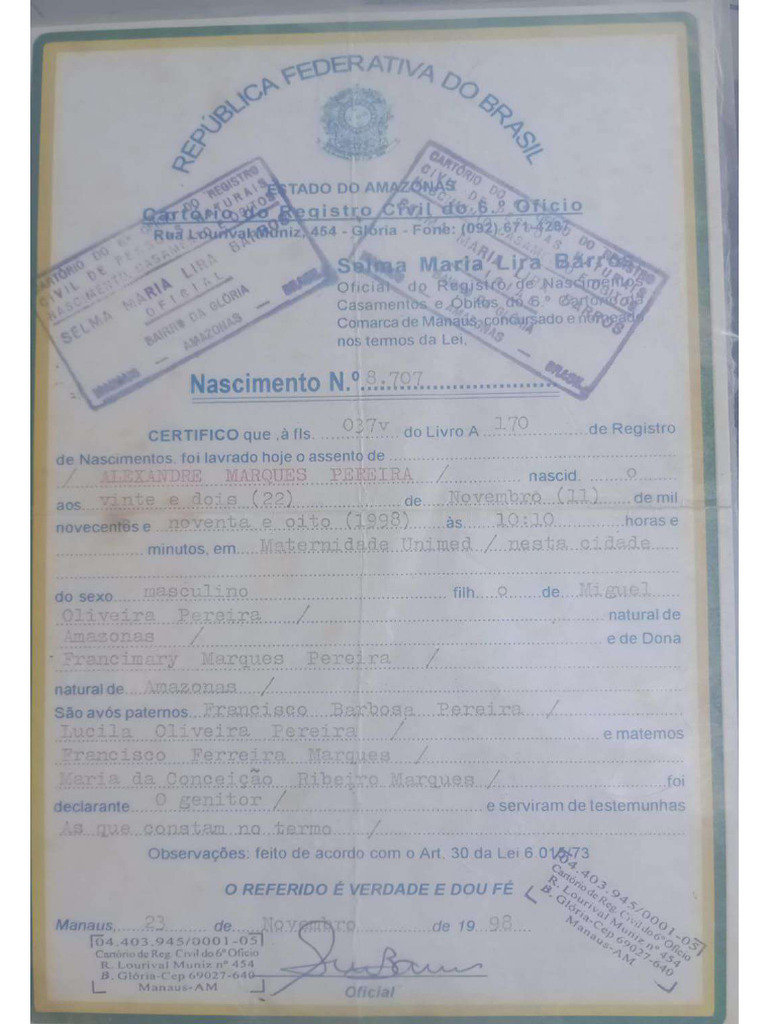 REPÚBLICA FEDERATIVA DO BRASIL
ESTADO DO AMAZONAS
Cartório do Registro Civil do 6.º Ofício
Rua Lourival Muniz, 454 - Glória - Fone: (092) 671-4287
CARTÓRIO DO 6º OFÍCIO DO REGISTRO
CIVIL DE PESSOAS NATURAIS
NASCIMENTO, CASAMENTO E ÓBITOS
SELMA MARIA LIRA BARROS
OFICIAL
BAIRRO DA GLÓRIA
MANAUS — AMAZONAS — BRASIL
CARTÓRIO DO REGISTRO
CIVIL DE NATURAIS
NASCIMENTO, CASAMENTO
MARIA LIRA BARROS
GLÓRIA
AMAZONAS — BRASIL
Selma Maria Lira Barros
Oficial do Registro de Nascimentos
Casamentos e Óbitos do 6.º Cartório da
Comarca de Manaus, concursado e nomeado
nos termos da Lei.
Nascimento N.º 8.707
CERTIFICO que ,à fls. 037v do Livro A 170 de Registro
de Nascimentos, foi lavrado hoje o assento de
/ ALEXANDRE MARQUES PEREIRA / nascid. o
aos vinte e dois (22) de Novembro (11) de mil
novecentos e noventa e oito (1998) às 10:10 horas e
minutos, em Maternidade Unimed / nesta cidade
do sexo masculino filh o de Miguel
Oliveira Pereira / natural de
Amazonas / e de Dona
Francimary Marques Pereira /
natural de Amazonas /
São avós paternos Francisco Barbosa Pereira /
Lucila Oliveira Pereira / e maternos
Francisco Ferreira Marques /
Maria da Conceição Ribeiro Marques / foi
declarante O genitor / e serviram de testemunhas
As que constam no termo /
Observações: feito de acordo com o Art. 30 da Lei 6.015/73
O REFERIDO É VERDADE E DOU FÉ
Manaus, 23 de Novembro de 19 98
04.403.945/0001-05
Cartório de Reg. Civil do 6º Ofício
R. Lourival Muniz nº 454
B. Glória-Cep 69027-640
Manaus-AM
Oficial
04.403.945/0001-05
Cartório de Reg. Civil do 6º Ofício
R. Lourival Muniz nº 454
B. Glória-Cep 69027-640
Manaus-AM